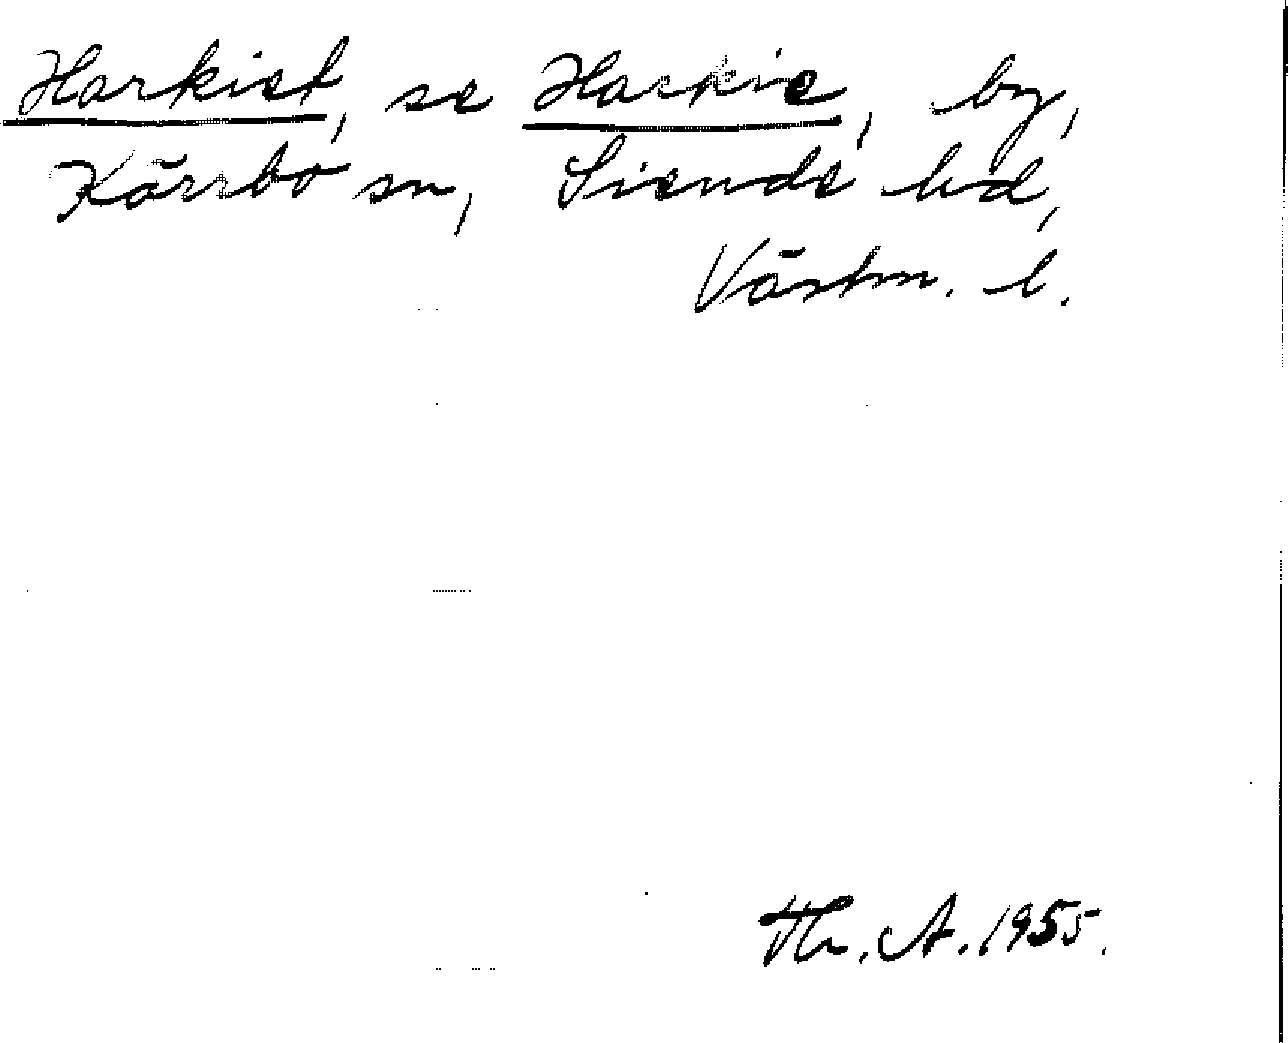 Harkist, se Harkie, by,
Kärrbo sn, Siende hd,
Västm. l.
Th. A. 1955.